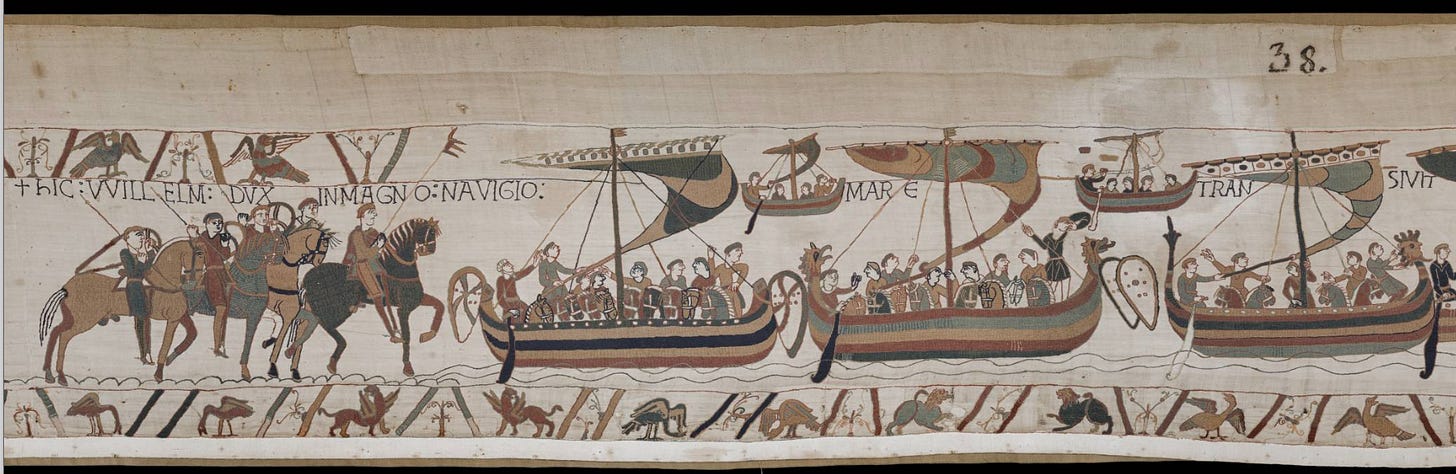 38.
+ hIC : VVILLELM : DVX IN MAGNO : NAVIGIO : MARE TRANSIVIT